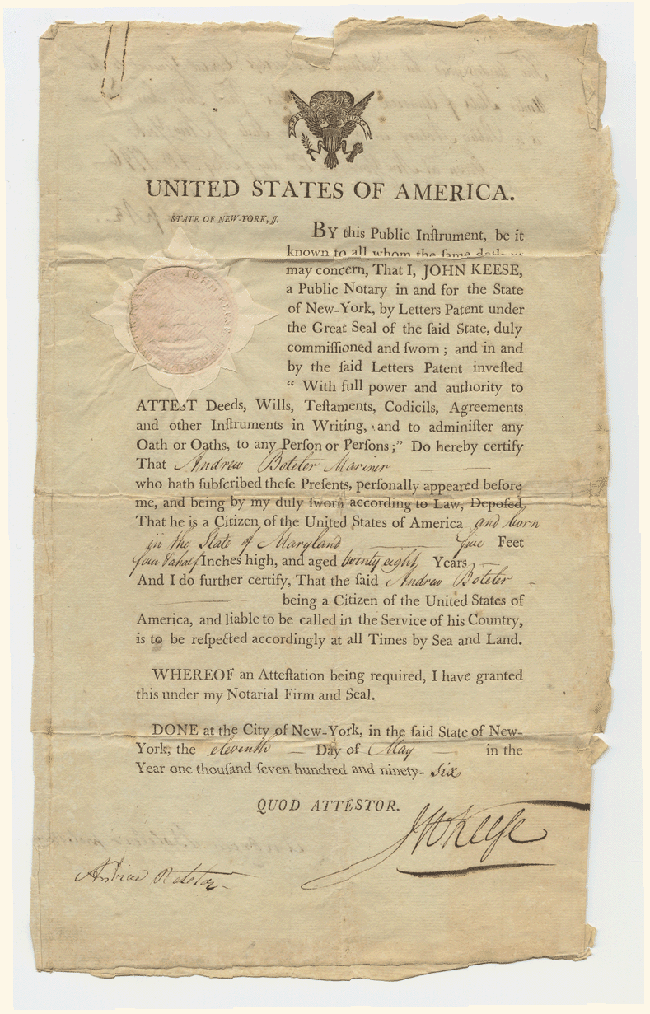 UNITED STATES OF AMERICA.
STATE OF NEW-YORK, ſſ.
BY this Public Inſtrument, be it
known to all whom the ſame doth or
may concern, That I, JOHN KEESE,
a Public Notary in and for the State
of New-York, by Letters Patent under
the Great Seal of the ſaid State, duly
commiſſioned and ſworn; and in and
by the ſaid Letters Patent inveſted
“ With full power and authority to
ATTEST Deeds, Wills, Teſtaments, Codicils, Agreements
and other Inſtruments in Writing, and to adminiſter any
Oath or Oaths, to any Perſon or Perſons;” Do hereby certify
That Andrew Boteler Mariner
who hath ſubſcribed theſe Preſents, perſonally appeared before
me, and being by my duly ſworn according to Law, Depoſed,
That he is a Citizen of the United States of America and born
in the State of Maryland five Feet
four & a half Inches high, and aged twenty eight Years
And I do further certify, That the ſaid Andrew Boteler
being a Citizen of the United States of
America, and liable to be called in the Service of his Country,
is to be reſpected accordingly at all Times by Sea and Land.
WHEREOF an Atteſtation being required, I have granted
this under my Notarial Firm and Seal.
DONE at the City of New-York, in the ſaid State of New-
York, the eleventh Day of May in the
Year one thouſand ſeven hundred and ninety- six
QUOD ATTESTOR.
Jn Keeſe
Andrew Boteler